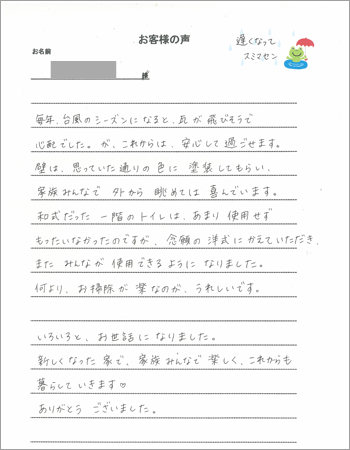 お客様の声
遅くなって
スミマセン
お名前
様
毎年、台風のシーズンになると、瓦が飛びそうで
心配でした。が、これからは、安心して過ごせます。
壁は、思っていた通りの色に塗装してもらい、
家族みんなで外から眺めては喜んでいます。
和式だった一階のトイレは、あまり使用せず
もったいなかったのですが、念願の洋式にかえていただき、
またみんなが使用できるようになりました。
何より、お掃除が楽なのが、うれしいです。
いろいろと、お世話になりました。
新しくなった家で、家族みんなで楽しく、これからも
暮らしていきます♡
ありがとうございました。